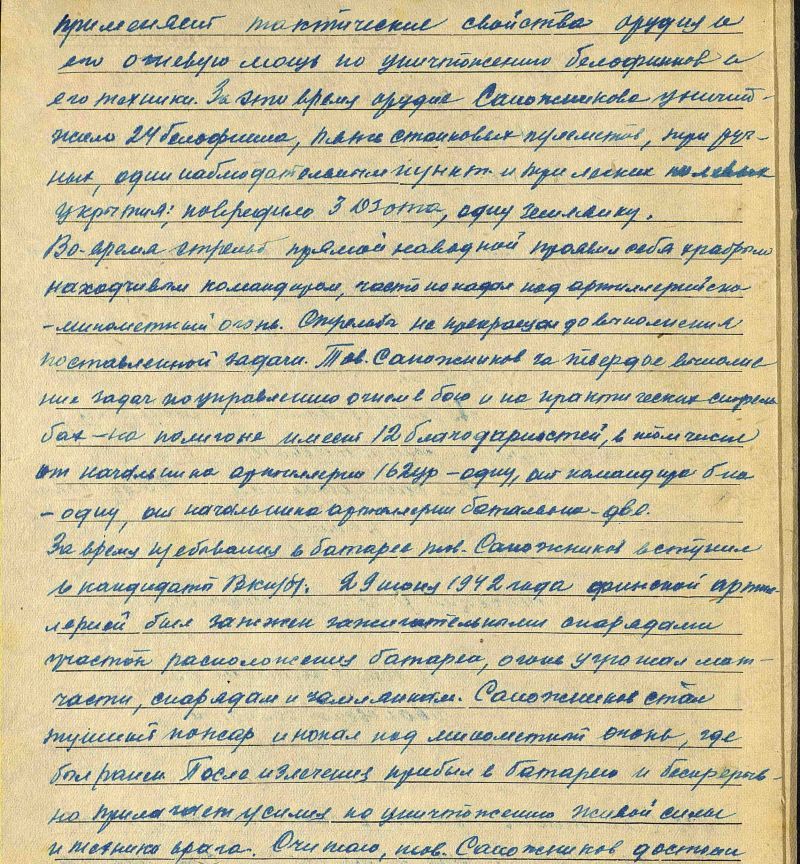 применяет тактические свойства орудия и
его огневую мощь по уничтожению белофиннов и
его техники. За это время орудие Сапожникова уничто-
жило 24 белофинна, пять станковых пулеметов, три руч-
ных, один наблюдательный пункт и три легких полевых
укрытия; повредило 3 дзота, одну землянку.
Во-время стрельб прямой наводкой проявил себя храбрым
находчивым командиром, часто попадал под артиллерийско
-минометный огонь. Стрельбы не прекращал до выполнения
поставленной задачи. Тов. Сапожников за твердое выполне
ние задач по управлению огнем в бою и на практических стрель
бах - на полигоне имеет 12 благодарностей, в том числе
от начальника артиллерии 162ур - одну, от командира б-на
- одну, от начальника артиллерии батальона - две.
За время пребывания в батарее тов. Сапожников вступил
в кандидаты ВКП(б). 29 июня 1942 года финской артил-
лерией был зажжен зажигательными снарядами
участок расположения батареи, огонь угрожал мат-
части, снарядам и землянкам. Сапожников стал
тушить пожар и попал под минометный огонь, где
был ранен. После излечения прибыл в батарею и беспрерыв-
но прилагает усилия по уничтожению живой силы
и техники врага. Считаю, тов. Сапожников достоин